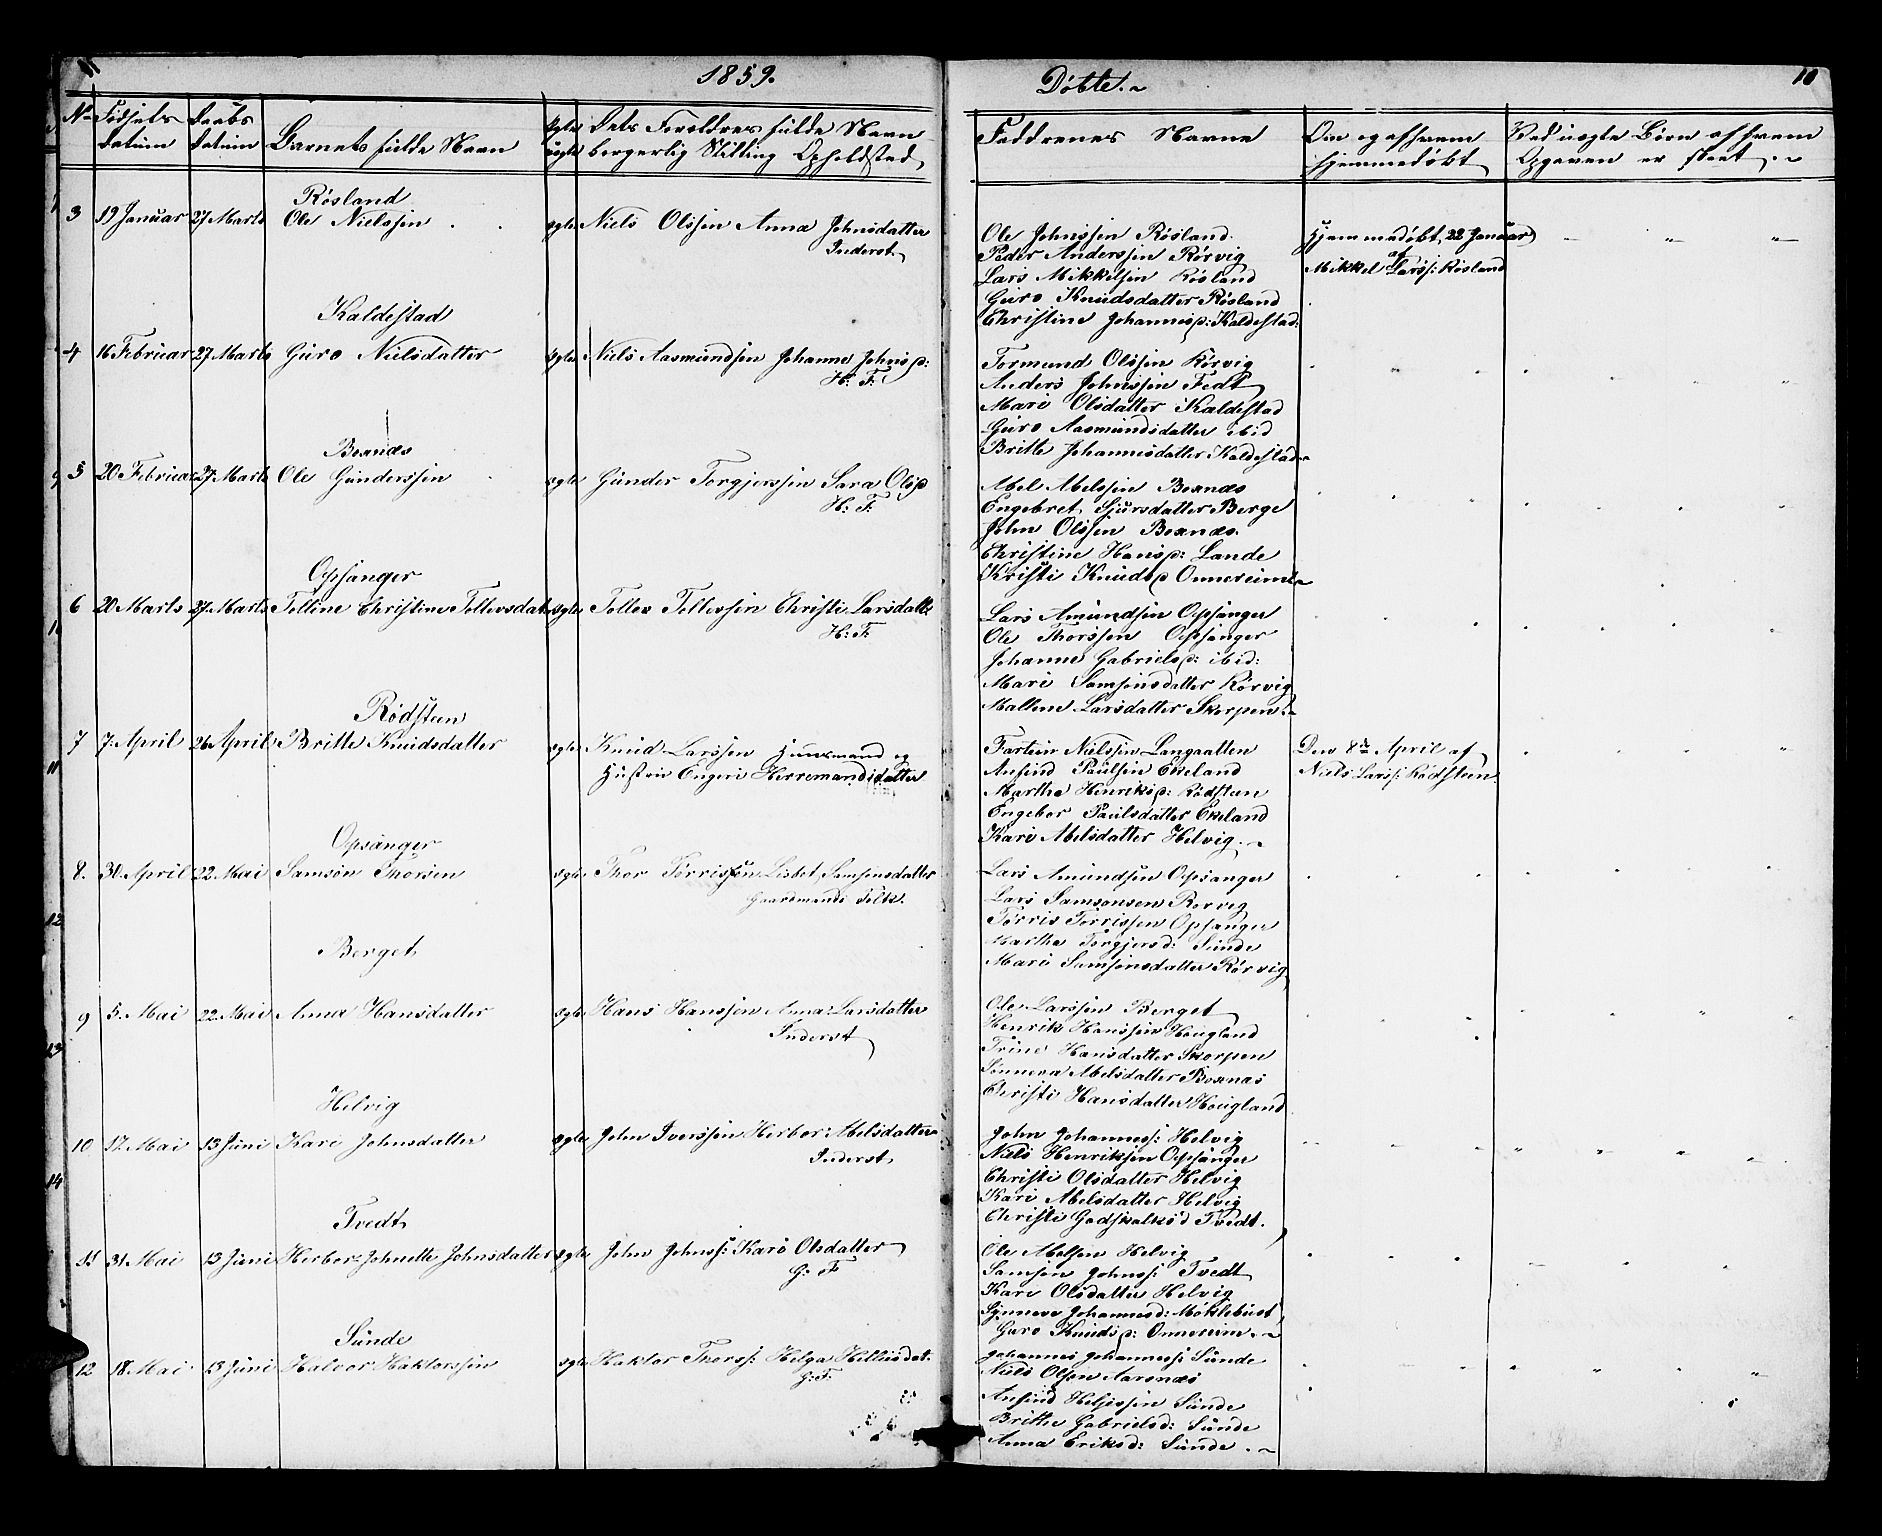 1859.
Døbte.
10
No Fødsels Datum
Daabs Datum
Barnets fulde Navn
Ægte uægte
Dets Foreldres fulde Navn borgerlig Stilling Opholdsted
Faddrenes Navne
Om og af hvem hjemmedøbt
Ved uægte Børn af hvem Opgaven er skeet
Røsland
3 19 Januar 27 Marts Ole Nielssen ægte Niels Olssen Anna Johnsdatter
Inderst
Ole Johnssen Røsland
Peder Anderssen Rørvig
Lars Mikkelsen Røsland
Guro Knudsdatter Røsland
Christine Johannisd: Kaldestad
Hjemmedøbt 22 Januar
af
Mikkel Larss: Røsland
Kaldestad
4 16 Februar 27 Marts Guro Nielsdatter ægte Niels Aasmundsen Johanne Johnsd:
H: F:
Tormund Olssen Rørvig
Anders Johnssen Tedt
Mari Olsdatter Kaldestad
Guro Aasmundsdatter ibid
Britte Johannisdatter Kaldestad
Boxnæs
5 20 Februar 27 Marts Ole Gunderssen ægte Gunder Torgjerssen Sara Olsd
H: F:
Abel Abelssen Boxnæs
Engebret Sjursdatter Berge
John Olssen Boxnæs
Christine Hansd: Lande
Kristi Knudsd Onnereim
Opsanger
6 20 Marts 27 Marts Teline Christine Tollevsdat ægte Tollev Tollevssen Christi Larsdatt
H: F:
Lars Amundsen Opsanger
Ole Thorssen Opsanger
Johanne Gabrielsd: ibid:
Mari Samsonsdatter Rørvig
Mallene Larsdatter Skorpen
Rødsteen
7 7 April 26 April Britte Knudsdatter ægte Knud Larssen Huusmand og
Hustrue Engeri Herremandsdatter
Fartein Nielssen Langaatten
Anfind Paulsen Ekeland
Martha Henriksd: Rødsteen
Engebor Paulsdatter Ekeland
Kari Abelsdatter Helvig
Den 8de April af
Niels Larss: Rødsteen
Opsanger
8. 30 April 22 Mai Samson Thorsen ægte Thor Tørrissen Lisbet Samsonsdatter
Gaardmands Folk.
Lars Amundsen Opsanger
Lars Samsonsen Rorvig
Tørris Tørrissen Opsanger
Martha Torgjersd: Sunde
Mari Samsonsdatter Rørvig
Berget
9 5. Mai 22 Mai Anna Hansdatter ægte Hans Hanssen Anna Larsdatter
Inderst
Ole Larssen Berget
Henrik Hanssen Hougland
Trine Hansdatter Skorpen
Sønneva Abelsdatter Boxnæs
Christi Hansdatter Hougland
Helvig
10 17. Mai 13 Juni Kari Johnsdatter ægte John Iverssen Herbor Abelsdatter
Inderst
John Johanness: Helvig
Niels Henriksen Opsanger
Christi Olsdatter Helvig
Kari Abelsdatter Helvig
Christi Godskalksd Tvedt.
Tvedt
11 31 Mai 13 Juni Herbor Johnette Johnsdatter ægte John Johnss: Kari Olsdatter
G: F
Ole Abelsen Helvig
Samson Johnss: Tvedt
Kari Olsdatter Helvig
Synneve Johannesd: Møklebust
Guro Knudsd: Onnereim
Sunde
12 18 Mai 13 Juni Halvor Haktorssen ægte Haktor Thorss: Helga Hellisdat.
G: F.
Johannes Johanness: Sunde
Niels Olsen Aarsnæs
Anfind Heljessen Sunde
Britte Gabrielsd: Sunde
Anna Eriksd: Sunde